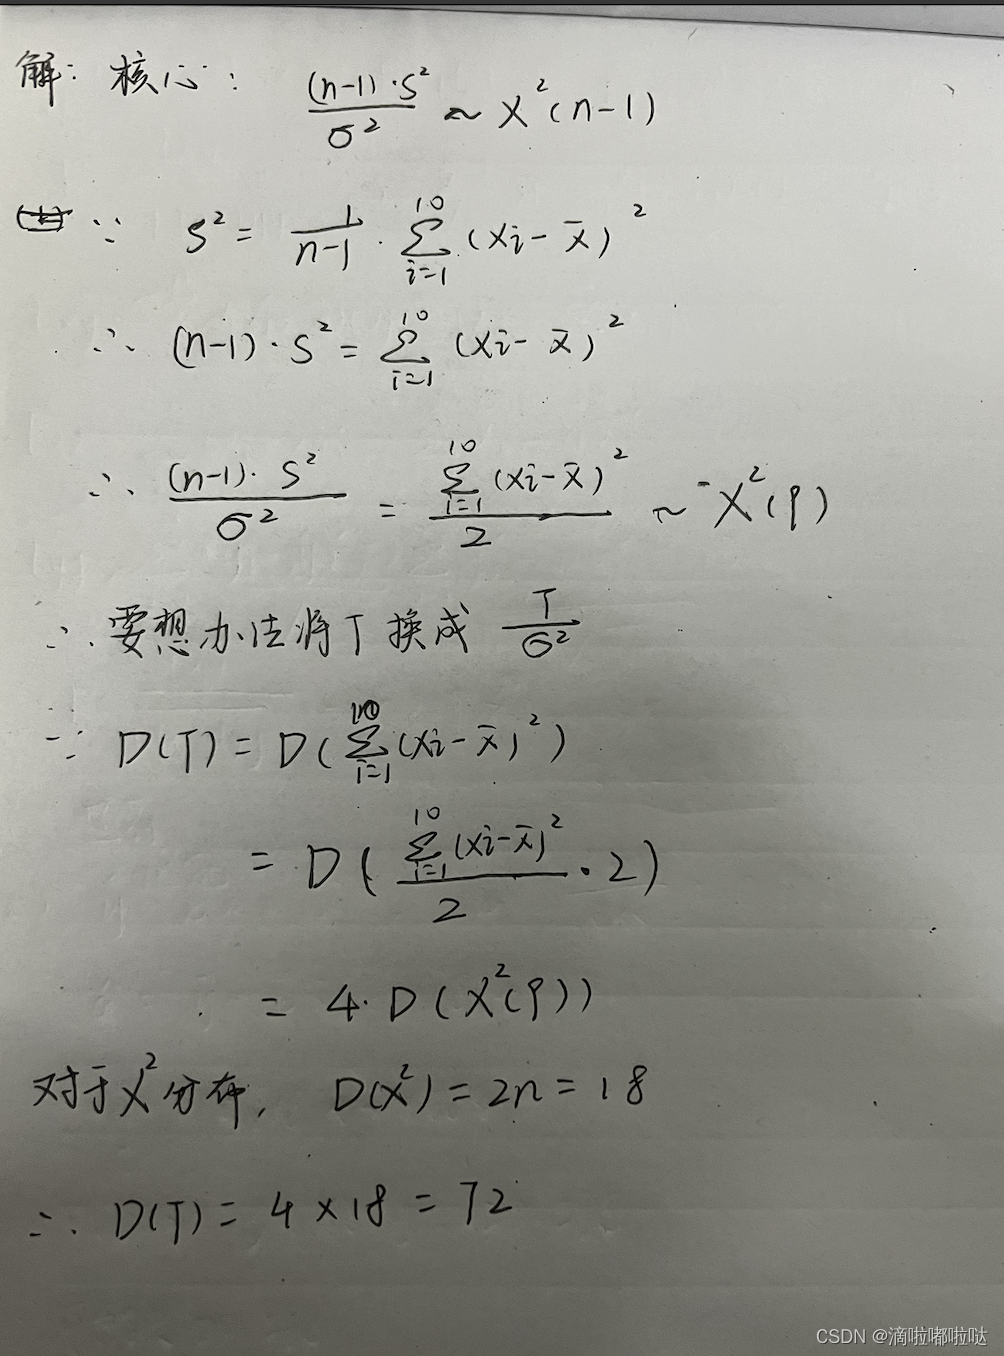 解: 核心: (n-1)·S²/σ² ~ X²(n-1)
∵ S² = 1/(n-1) · Σ_{i=1}^{10} (Xi - X̄)²
∴ (n-1)·S² = Σ_{i=1}^{10} (Xi - X̄)²
∴ (n-1)·S²/σ² = Σ_{i=1}^{10} (Xi - X̄)²/2 ~ X²(9)
∴ 要想办法将T换成 T/σ²
∵ D(T) = D(Σ_{i=1}^{10} (Xi - X̄)²)
= D(Σ_{i=1}^{10} (Xi - X̄)²/2 · 2)
= 4·D(X²(9))
对于X²分布, D(X²) = 2n = 18
∴ D(T) = 4 × 18 = 72
CSDN @滴啦嘟啦哒